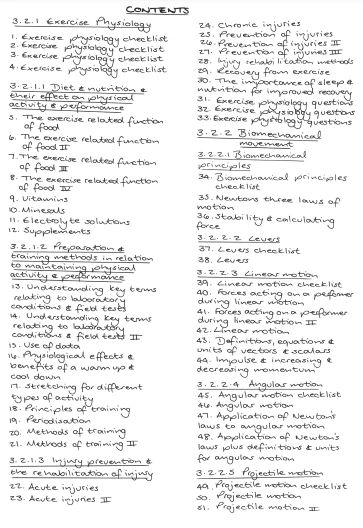 CONTENTS
3.2.1 Exercise Physiology
1. Exercise physiology checklist
2. Exercise physiology checklist
3. Exercise physiology checklist
4. Exercise physiology checklist
3.2.1.1 Diet & nutrition &
their effect on physical
activity & performance
5. The exercise related function
of food
6. The exercise related function
of food II
7. The exercise related function
of food III
8. The exercise related function
of food IV
9. Vitamins
10. Minerals
11. Electrolyte solutions
12. Supplements
3.2.1.2 Preparation &
training methods in relation
to maintaining physical
activity & performance
13. Understanding key terms
relating to laboratory
conditions & field tests
14. Understanding key terms
relating to laboratory
conditions & field tests II
15. Use of data
16. Physiological effects &
benefits of a warm up &
cool down
17. Stretching for different
types of activity
18. Principles of training
19. Periodisation
20. Methods of training
21. Methods of training II
3.2.1.3 Injury prevention &
the rehabilitation of injury
22. Acute injuries
23. Acute injuries II
24. Chronic injuries
25. Prevention of injuries
26. Prevention of injuries II
27. Prevention of injuries III
28. Injury rehabilitation methods
29. Recovery from exercise
30. The importance of sleep &
nutrition for improved recovery
31. Exercise physiology questions
32. Exercise physiology questions
33. Exercise physiology questions
3.2.2 Biomechanical
movement
3.2.2.1 Biomechanical
principles
34. Biomechanical principles
checklist
35. Newtons three laws of
motion
36. Stability & calculating
force
3.2.2.2 Levers
37. Levers checklist
38. Levers
3.2.2.3 Linear motion
39. Linear motion checklist
40. Forces acting on a performer
during linear motion
41. Forces acting on a performer
during linear motion II
42. Linear motion
43. Definitions, equations &
units of vectors & scalars
44. Impulse & increasing &
decreasing momentum
3.2.2.4 Angular motion
45. Angular motion checklist
46. Angular motion
47. Application of Newton's
laws to angular motion
48. Application of Newton's
laws plus definitions & units
for angular motion
3.2.2.5 Projectile motion
49. Projectile motion checklist
50. Projectile motion
51. Projectile motion II